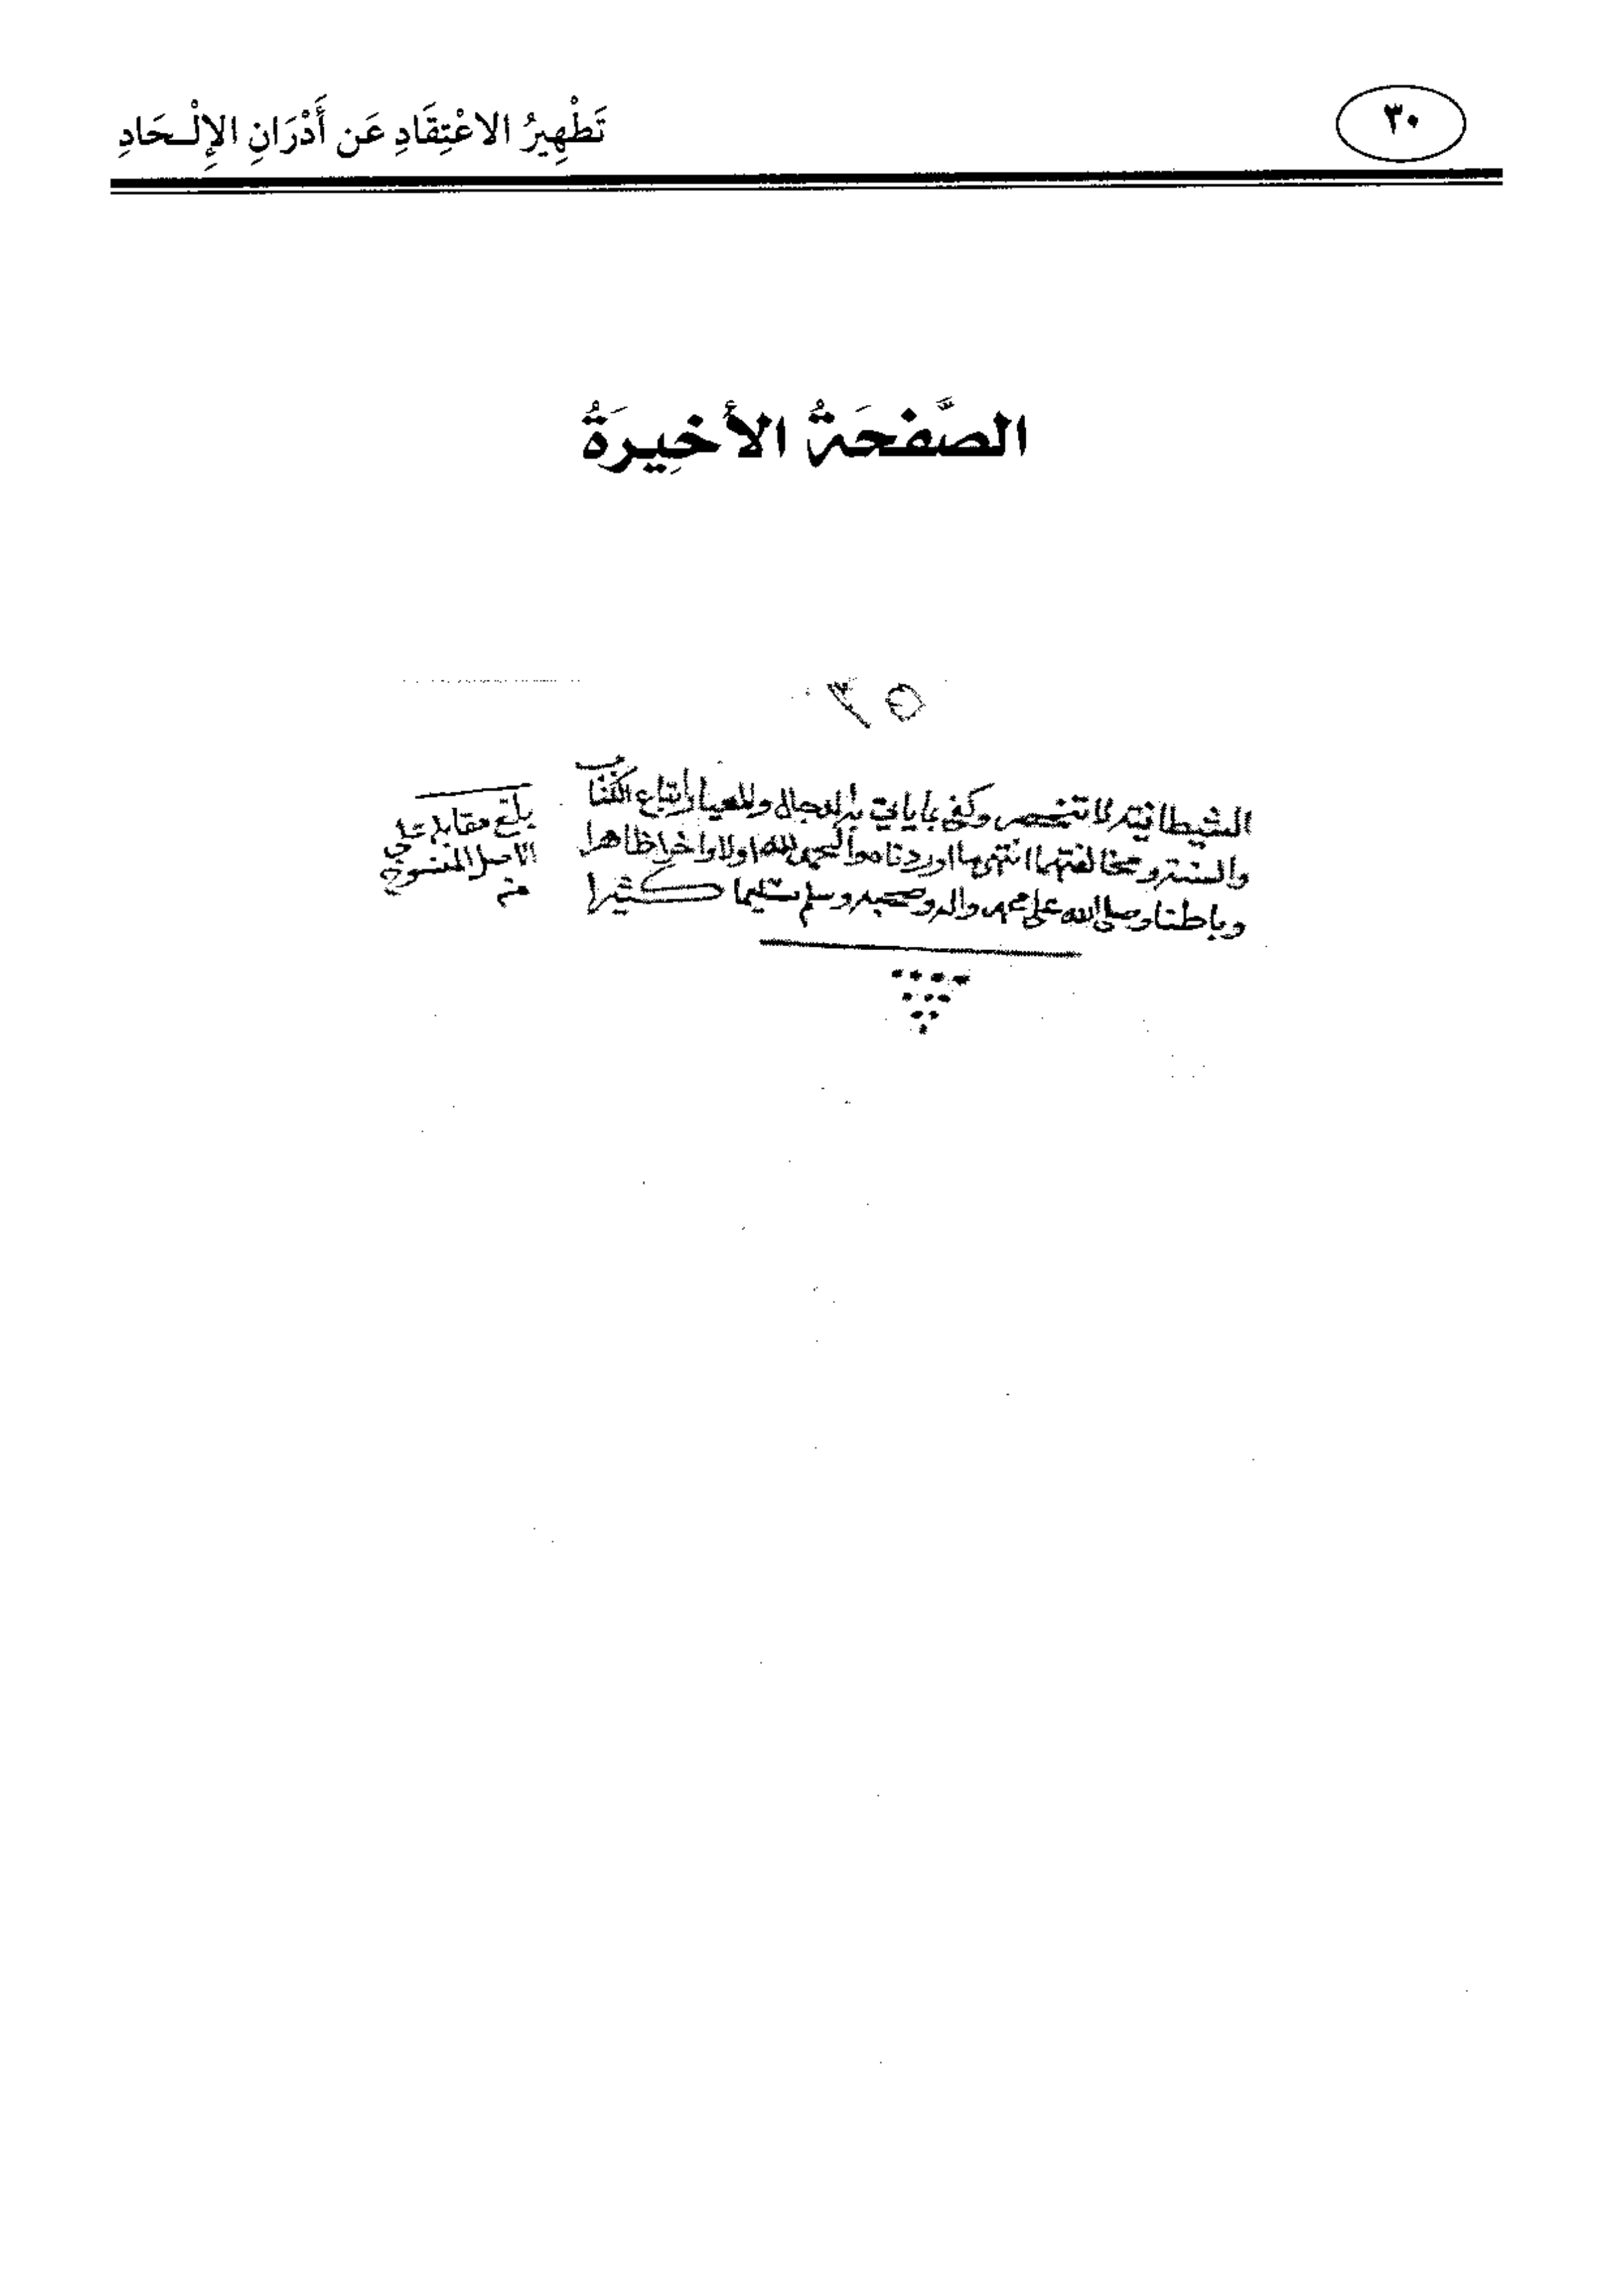 ٣٠
تَطْهِيرُ الاعْتِقَادِ عَن أَدْرَانِ الإِلْـحَادِ
الصَّفحَةُ الأخِيرَةُ
٣٥
الشيطانية لا تنحصر وكفى بما يأتي به الدجال والمعيار اتباع الكتاب
والسنة ومخالفتهما انتهى ما اوردناه والحمد لله اولا واخرا ظاهرا
وباطنا وصلى الله على محمد واله وصحبه وسلم تسليما كثيرا
بلغ مقابلة على
الاصل المنسوخ
منه